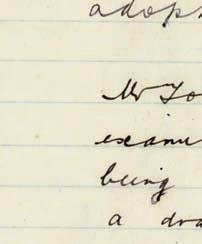 adop
Mr Fo
exami
being
a dra